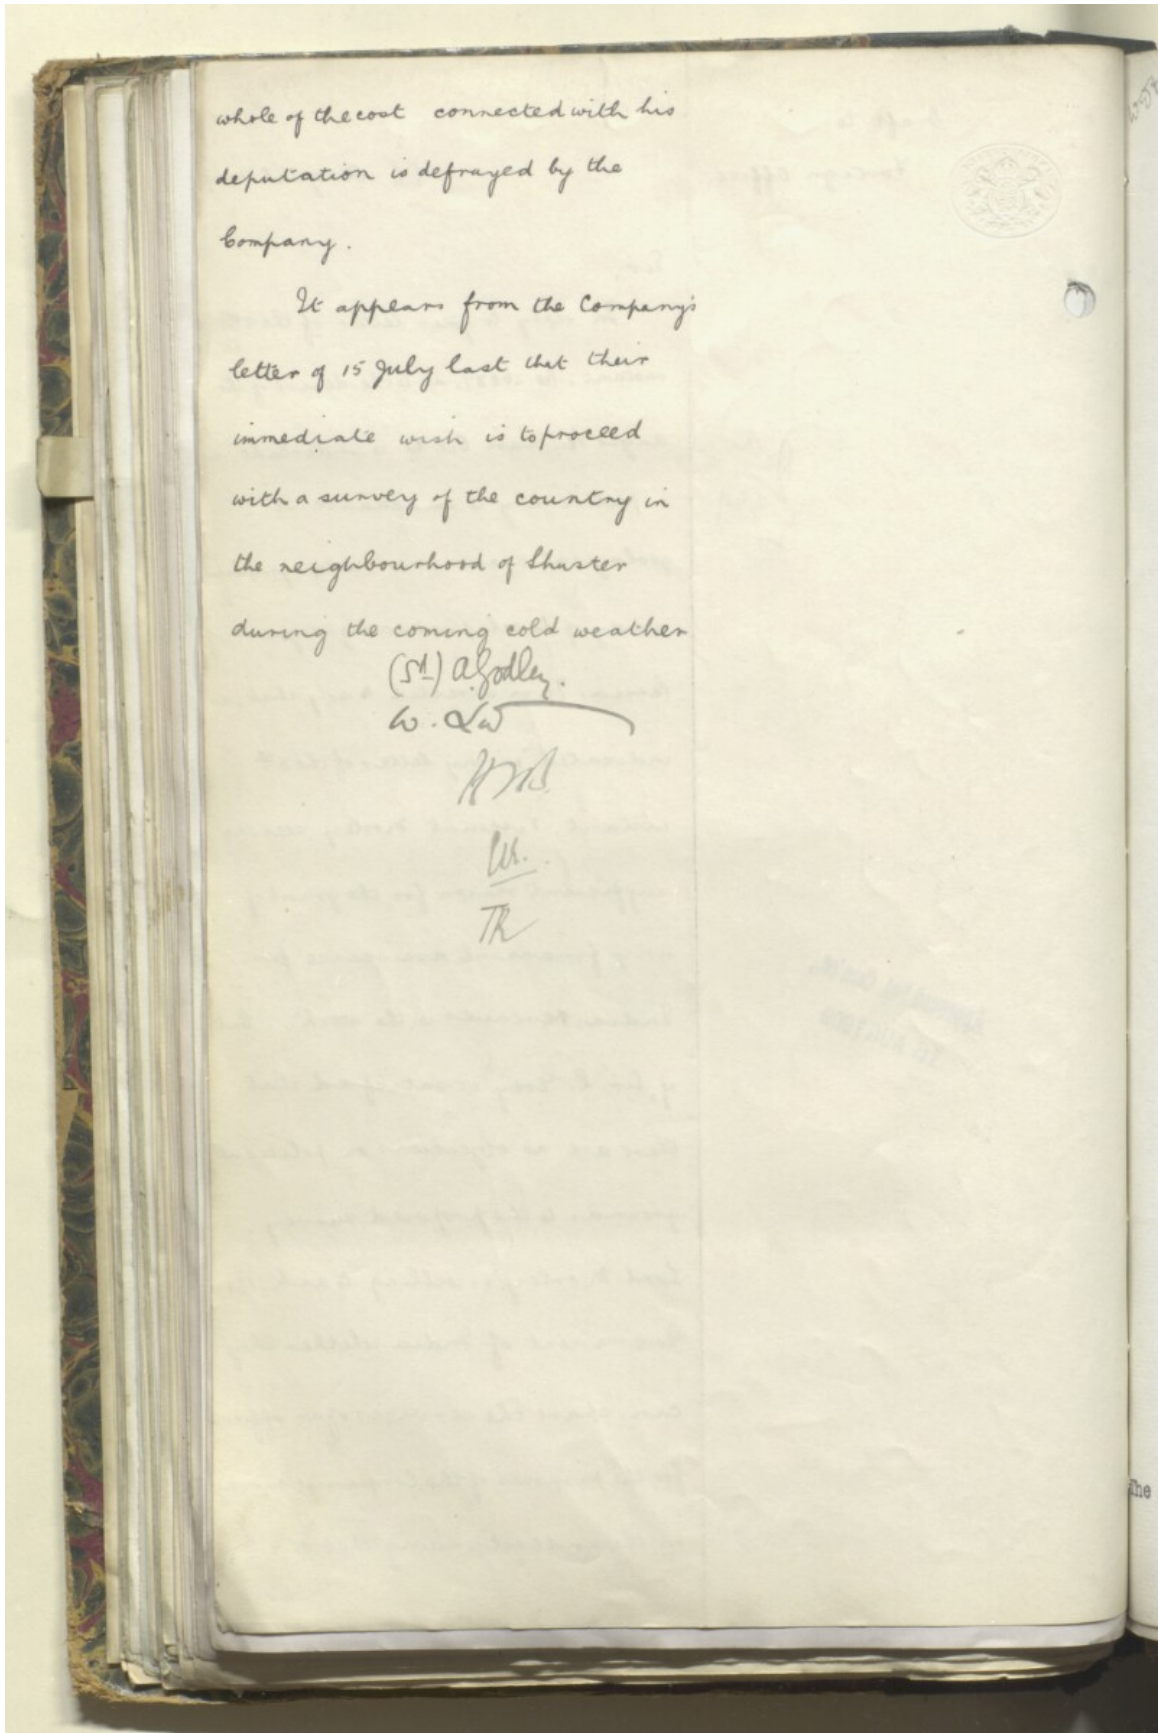 whole of the cost connected with his
deputation is defrayed by the
Company.
It appears from the Company's
letter of 15 July last that their
immediate wish is to proceed
with a survey of the country in
the neighbourhood of Shuster
during the coming cold weather
(Sd) A. Godley.
W. LW
TR
The